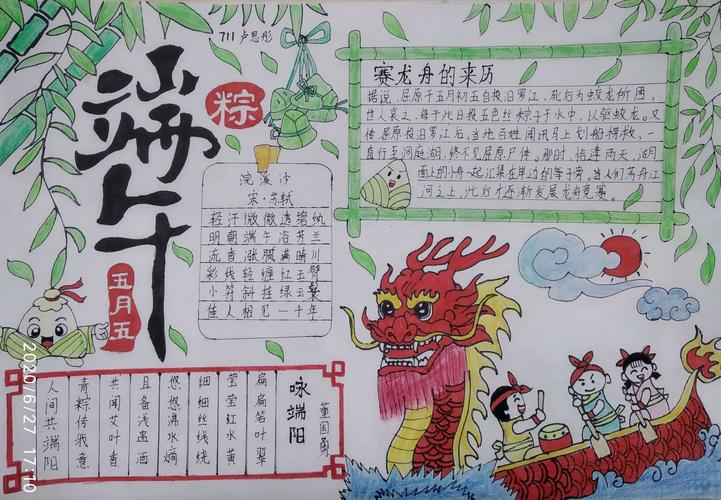 711 卢思彤
端午
粽
五月五
浣溪沙
宋·苏轼
轻汗微微透碧纨
明朝端午浴芳兰
流香涨腻满晴川
彩线轻缠红玉臂
小符斜挂绿云鬟
佳人相见一千年
赛龙舟的来历
据说,屈原于五月初五自投汨罗江,死后为蛟龙所困,
世人哀之,每于此日投五色丝粽子于水中,以驱蛟龙。又
传,屈原投汨罗江后,当地百姓闻讯马上划船捞救,一
直行至洞庭湖,终不见屈原尸体。那时,恰逢雨天,湖
面上的小舟一起汇集在岸边的亭子旁。当人们
江河之上,此后才逐渐发展龙舟竞赛。
咏端阳
董国勇
扁扁箬叶翠
莹莹红水黄
细细丝线绕
悠悠沸水熵
且备浅逦酒
共闻艾叶香
青粽传我意
人间共端阳
2020/6/27 17:10